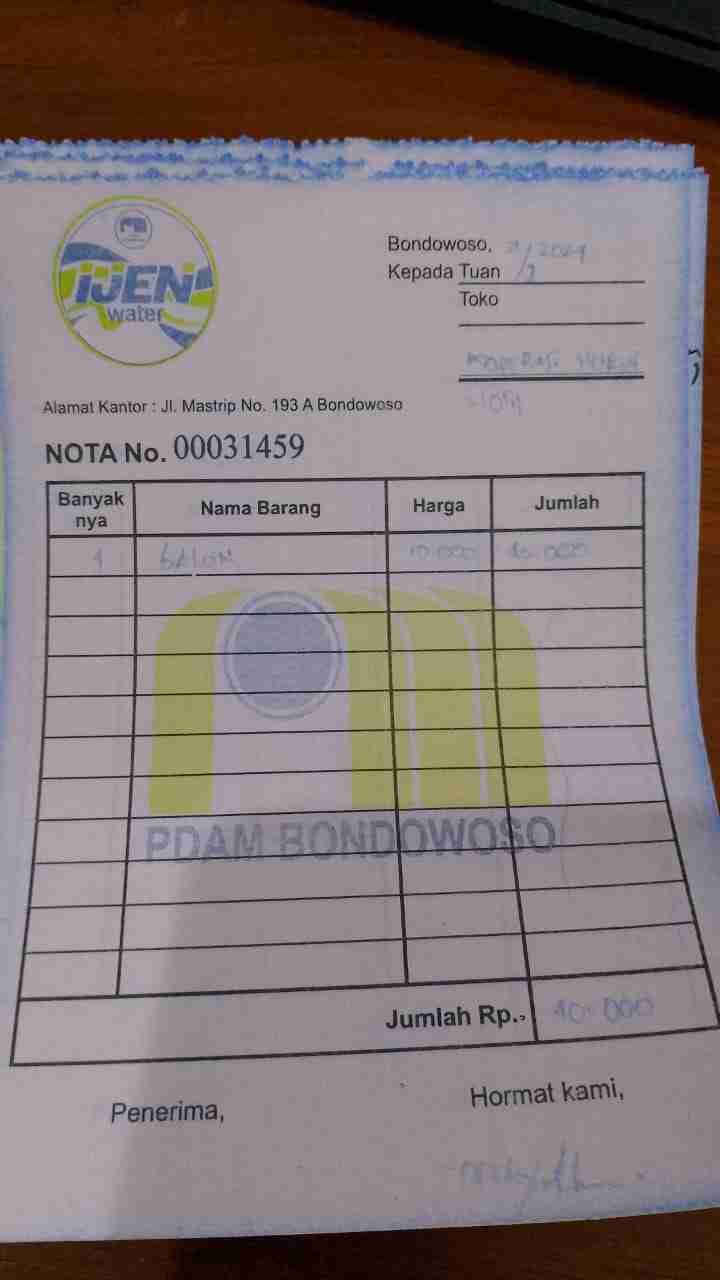 IJEN
water
Bondowoso, /2024
Kepada Tuan
Toko
Alamat Kantor : Jl. Mastrip No. 193 A Bondowoso
NOTA No. 00031459
Banyak nya Nama Barang Harga Jumlah
GALON 10.000
PDAM BONDOWOSO
Jumlah Rp.,
Penerima,
Hormat kami,